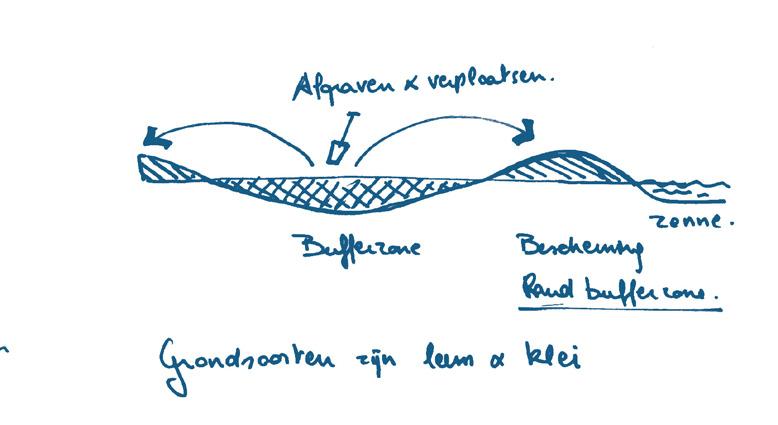 Afgraven & verplaatsen.
zenne.
Bufferzone
Bescherming
Rand bufferzone.
Grondsoorten zijn leem & klei